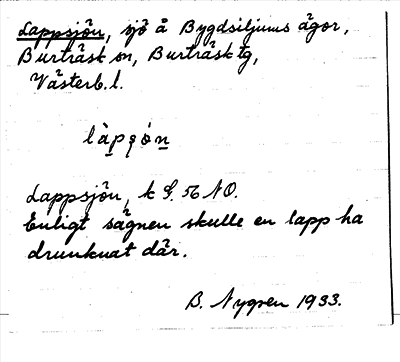 Lappsjön, sjö å Bygdsiljums ägor,
Burträsk sn, Burträsk tg,
Västerb. l.
Lappsjön, k G. 56 NO.
Enligt sägnen skulle en lapp ha
drunknat där.
B. Nygren 1933.